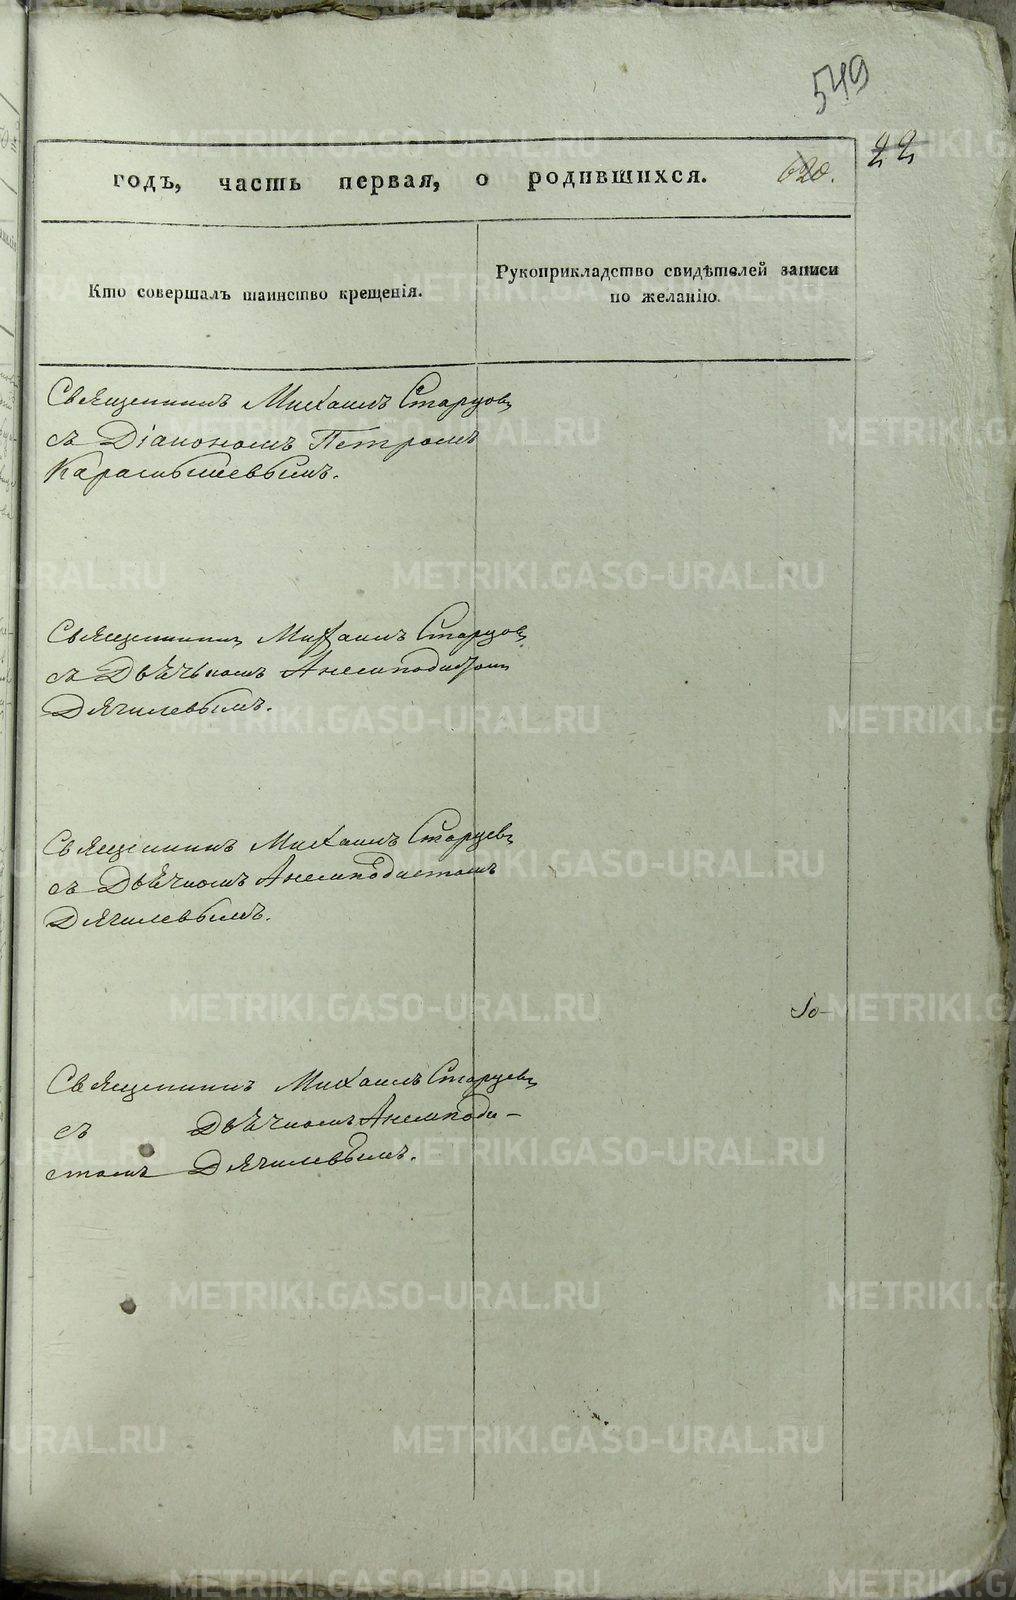 549
22
годъ, часть первая, о родившихся. 620.
Кто совершалъ таинство крещенія.
Рукоприкладство свидѣтелей записи
по желанію.
Священникъ Михаилъ Старцовъ
съ Діакономъ Петромъ
Карамышевымъ.
Священникъ Михаилъ Старцовъ
съ Дьячькомъ Анемподистомъ
Дягилевымъ.
Священникъ Михаилъ Старцевъ
съ Дьячкомъ Анемподистомъ
Дягилевымъ.
Священникъ Михаилъ Старцевъ
съ Дьячкомъ Анемподи-
стомъ Дягилевымъ.
METRIKI.GASO-URAL.RU